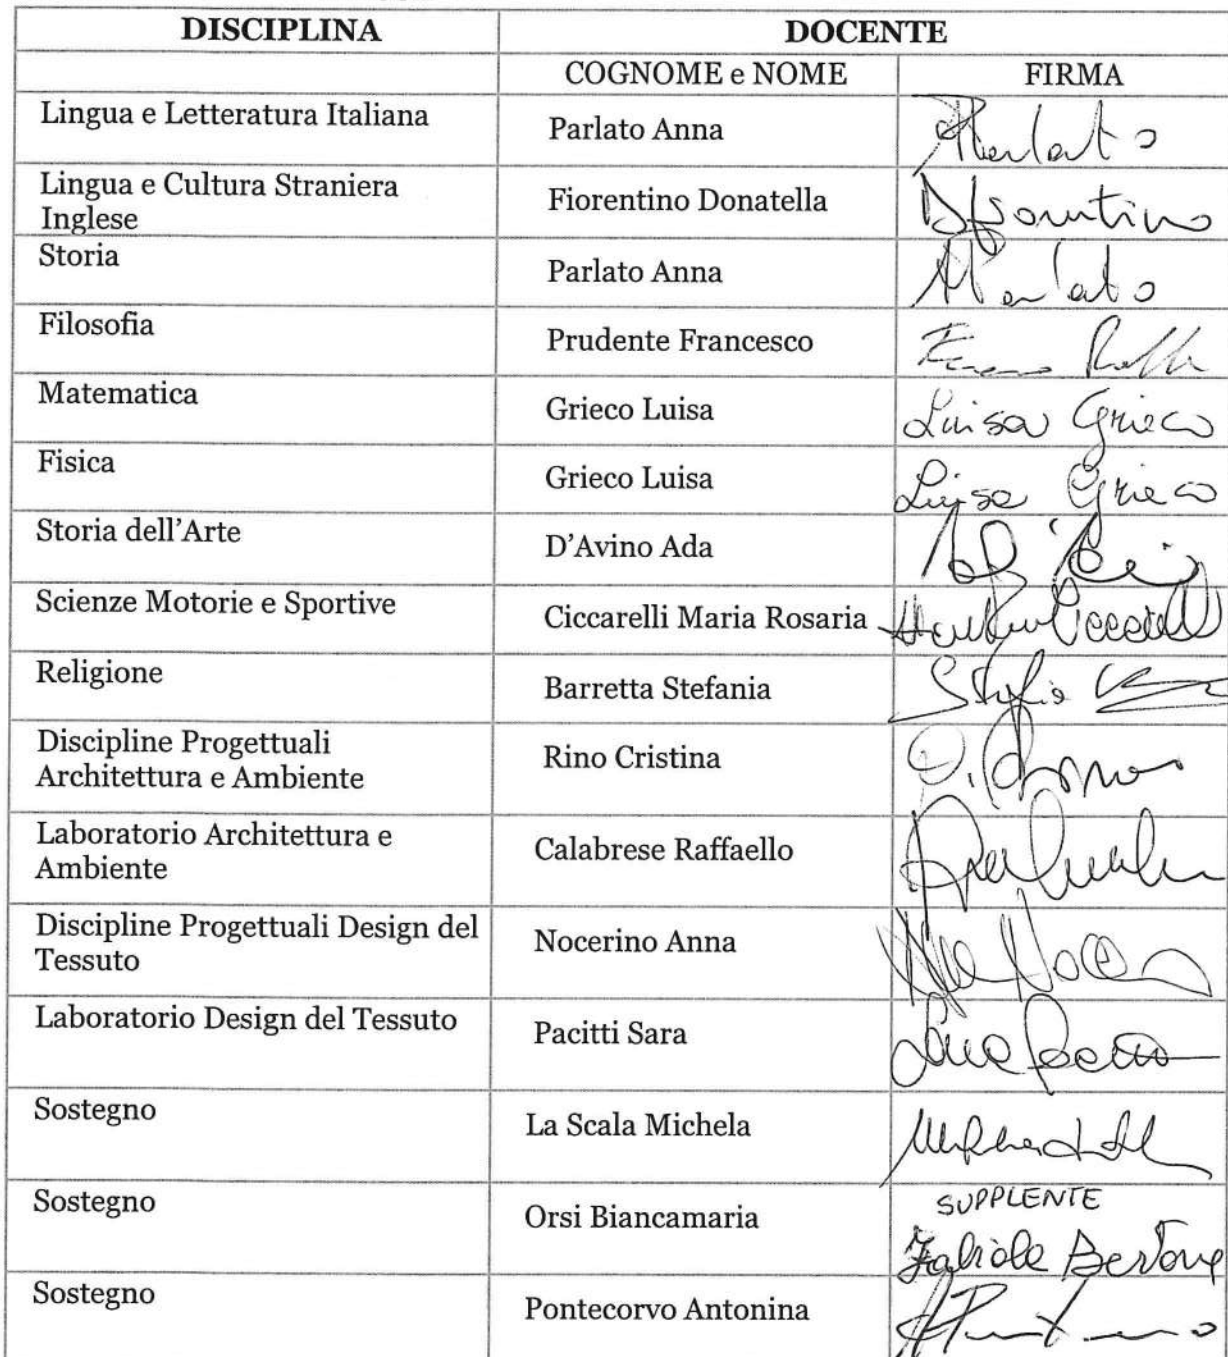 DISCIPLINA DOCENTE
COGNOME e NOME FIRMA
Lingua e Letteratura Italiana Parlato Anna AParlato
Lingua e Cultura Straniera
Inglese Fiorentino Donatella DFiorentino
Storia Parlato Anna AParlato
Filosofia Prudente Francesco
Matematica Grieco Luisa Luisa Grieco
Fisica Grieco Luisa Luisa Grieco
Storia dell'Arte D'Avino Ada
Scienze Motorie e Sportive Ciccarelli Maria Rosaria
Religione Barretta Stefania
Discipline Progettuali
Architettura e Ambiente Rino Cristina
Laboratorio Architettura e
Ambiente Calabrese Raffaello
Discipline Progettuali Design del
Tessuto Nocerino Anna
Laboratorio Design del Tessuto Pacitti Sara
Sostegno La Scala Michela
Sostegno Orsi Biancamaria SUPPLENTE
Fabiola Bertone
Sostegno Pontecorvo Antonina